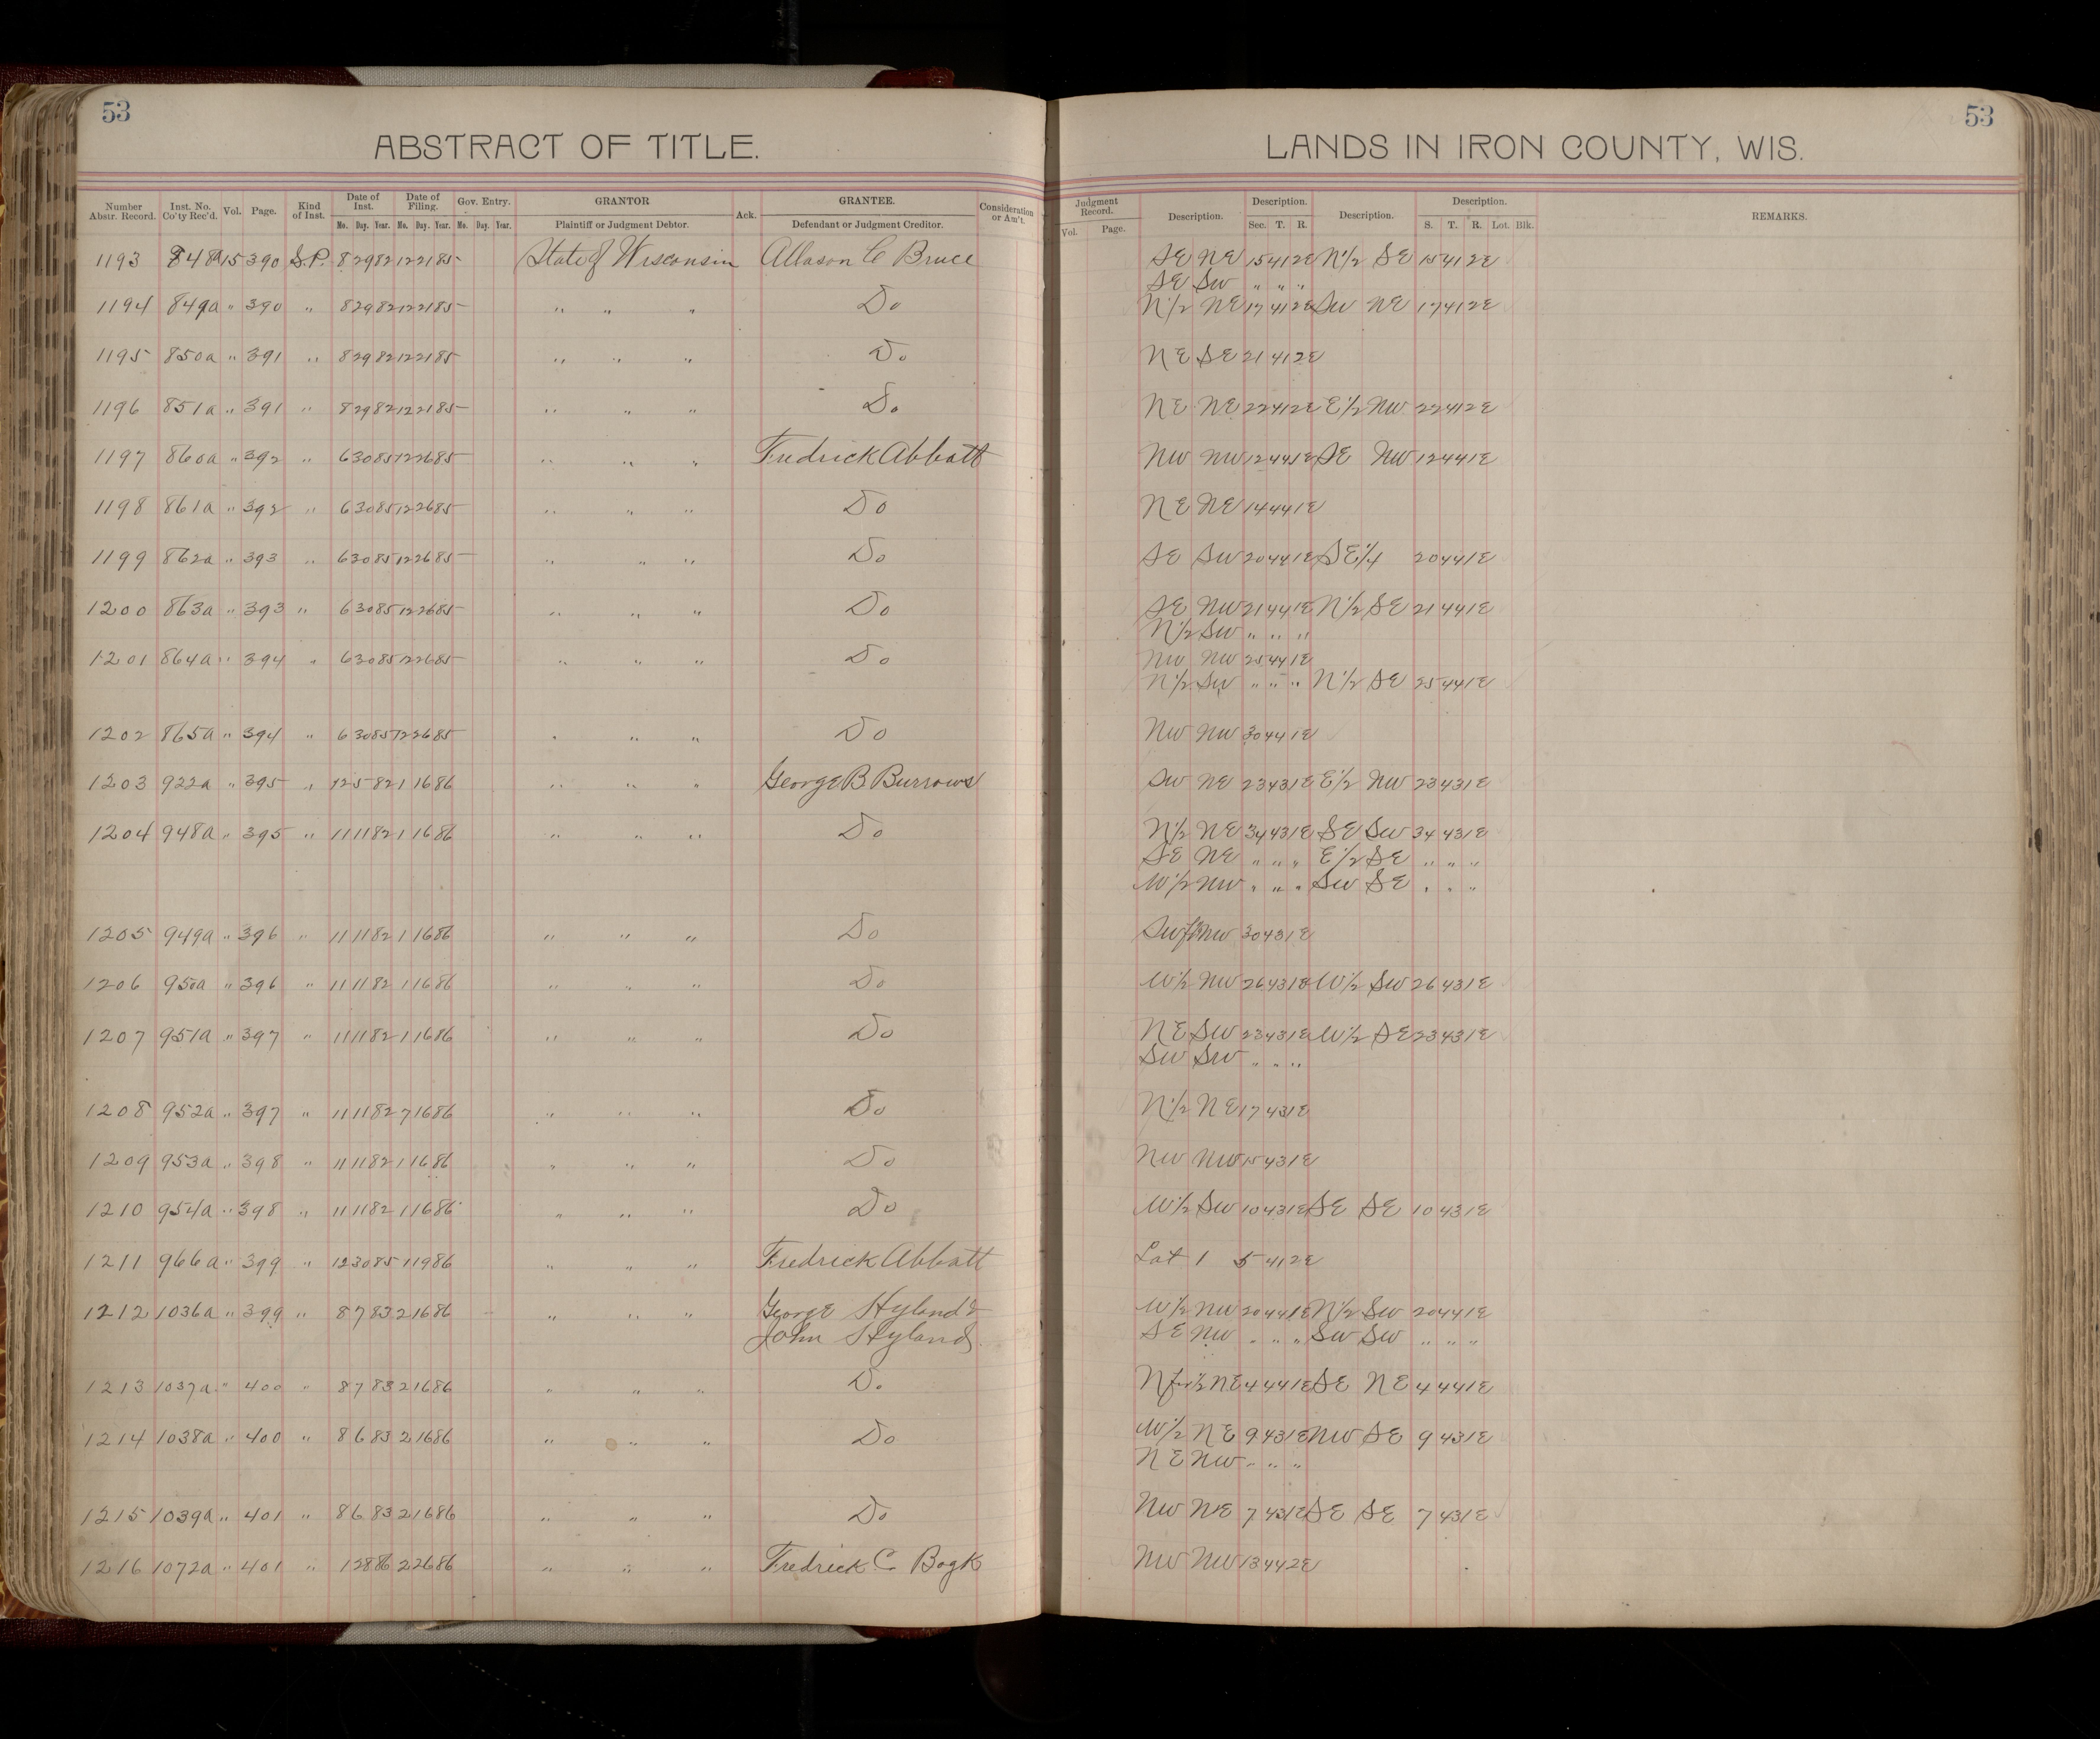 53
53
ABSTRACT OF TITLE.
LANDS IN IRON COUNTY, WIS.
Number Abstr. Record. Inst. No. Co'ty Rec'd. Vol. Page. Kind of Inst. Date of Inst. Date of Filing. Gov. Entry. GRANTOR Ack. GRANTEE. Consideration or Am't. Judgment Record. Description. Description. Description. Description. REMARKS.
Mo. Day. Year. Mo. Day. Year. Mo. Day. Year. Plaintiff or Judgment Debtor. Defendant or Judgment Creditor. Vol. Page. Sec. T. R. S. T. R. Lot. Blk.
1193 848a 15 390 S.P. 8 29 82 12 21 85 State of Wisconsin Allason C Bruce SE NE 15 41 2E N1/2 SE 15 41 2E
SE SW " " "
1194 849a " 390 " 8 29 82 12 21 85 " " " Do N1/2 NE 17 41 2E SW NE 17 41 2E
1195 850a " 391 " 8 29 82 12 21 85 " " " Do NE SE 21 41 2E
1196 851a " 391 " 8 29 82 12 21 85 " " " Do NE NE 22 41 2E E1/2 NW 22 41 2E
1197 860a " 392 " 6 30 85 12 26 85 " " " Fredrick Abbott NW NW 12 44 1E SE NW 12 44 1E
1198 861a " 392 " 6 30 85 12 26 85 " " " Do NE NE 14 44 1E
1199 862a " 393 " 6 30 85 12 26 85 " " " Do SE SW 20 44 1E SE1/4 20 44 1E
1200 863a " 393 " 6 30 85 12 26 85 " " " Do SE NW 21 44 1E N1/2 SE 21 44 1E
N1/2 SW " " "
1201 864a " 394 " 6 30 85 12 26 85 " " " Do NW NW 25 44 1E
N1/2 SW " " " N1/2 SE 25 44 1E
1202 865a " 394 " 6 30 85 12 26 85 " " " Do NW NW 30 44 1E
1203 922a " 395 " 12 5 82 1 16 86 " " " George B Burrows SW NE 23 43 1E E1/2 NW 23 43 1E
1204 948a " 395 " 11 11 82 1 16 86 " " " Do N1/2 NE 34 43 1E SE SW 34 43 1E
SE NE " " " E1/2 SE " " "
W1/2 NW " " " SW SE " " "
1205 949a " 396 " 11 11 82 1 16 86 " " " Do SW NW 30 43 1E
1206 950a " 396 " 11 11 82 1 16 86 " " " Do W1/2 NW 26 43 1E W1/2 SW 26 43 1E
1207 951a " 397 " 11 11 82 1 16 86 " " " Do NE SW 23 43 1E W1/2 SE 23 43 1E
SW SW " " "
1208 952a " 397 " 11 11 82 7 16 86 " " " Do N1/2 NE 17 43 1E
1209 953a " 398 " 11 11 82 1 16 86 " " " Do NW NW 15 43 1E
1210 954a " 398 " 11 11 82 1 16 86 " " " Do W1/2 SW 10 43 1E SE SE 10 43 1E
1211 966a " 399 " 12 30 85 1 19 86 " " " Fredrick Abbott Lot 1 5 41 2E
1212 1036a " 399 " 8 7 83 2 16 86 " " " George Hyland & W1/2 NW 20 44 1E N1/2 SW 20 44 1E
John Hyland SE NW " " " SW SW " " "
1213 1037a " 400 " 8 7 83 2 16 86 " " " Do N frl 1/2 NE 4 44 1E SE NE 4 44 1E
1214 1038a " 400 " 8 6 83 2 16 86 " " " Do W1/2 NE 9 43 1E NW SE 9 43 1E
NE NW " " "
1215 1039a " 401 " 8 6 83 2 16 86 " " " Do NW NE 7 43 1E SE SE 7 43 1E
1216 1072a " 401 " 1 28 86 2 26 86 " " " Fredrick C Bogk NW NW 13 44 2E